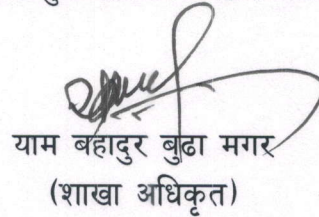 याम बहादुर बुढा मगर
(शाखा अधिकृत)